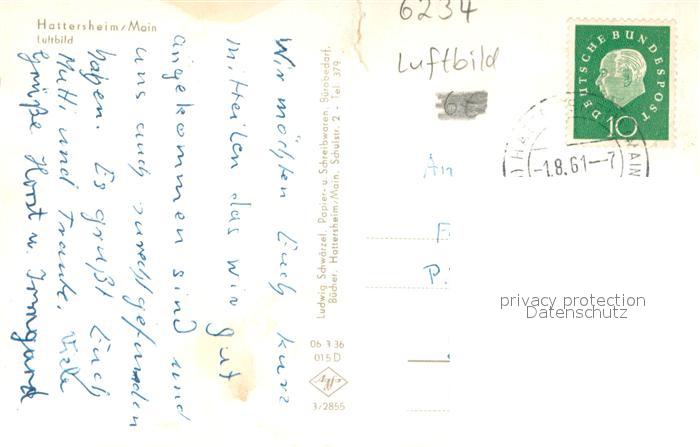 Hattersheim/Main
Luftbild
Wir möchten Euch kurz
mitteilen das wir gut
angekommen sind und
uns auch zurechtgefunden
haben. Es grüßt Euch
Mutti und Traute. Viele
Grüße Horst u. Irmgard
Ludwig Schwärzel, Papier- u. Schreibwaren, Bürobedarf,
Bücher, Hattersheim/Main, Schulstr. 2 - Tel. 379
06 3 36
015 D
3/2855
6234
Luftbild
DEUTSCHE BUNDESPOST
10
-1.8.61--7
MAIN
An
P.
privacy protection
Datenschutz